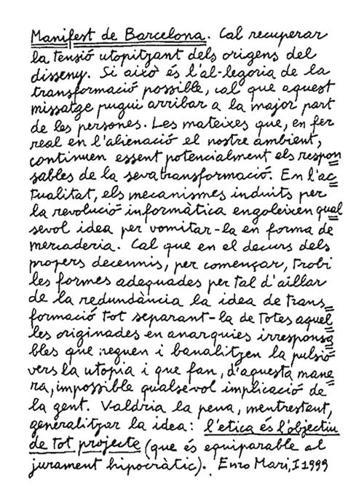 Manifest de Barcelona. Cal recuperar
la tensió utopitzant dels orígens del
disseny. Si això és l'al·legoria de la
transformació possible, cal que aquest
missatge pugui arribar a la major part
de les persones. Les mateixes que, en fer
real en l'alienació el nostre ambient,
continuen essent potencialment els respon
sables de la seva transformació. En l'ac
tualitat, els mecanismes induïts per
la revolució informàtica engoleixen qual
sevol idea per vomitar-la en forma de
mercaderia. Cal que en el decurs dels
propers decennis, per començar, trobi
les formes adequades per tal d'aïllar
de la redundància la idea de trans
formació tot separant-la de totes aquel
les originades en anarquies irresponsa
bles que neguen i banalitzen la pulsió
vers la utopia i que fan, d'aquesta mane
ra, impossible qualsevol implicació de
la gent. Valdria la pena, mentrestant,
generalitzar la idea: l'ètica és l'objectiu
de tot projecte (que és equiparable al
jurament hipocràtic). Enzo Mari, I 1999